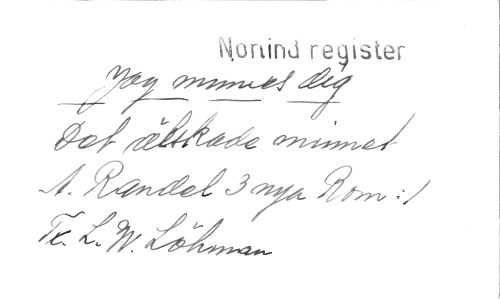 Norlind register
Jag minnes dig
Det älskade minnet
A. Randel 3 nya Rom :/
Tx. L. W. Löhman